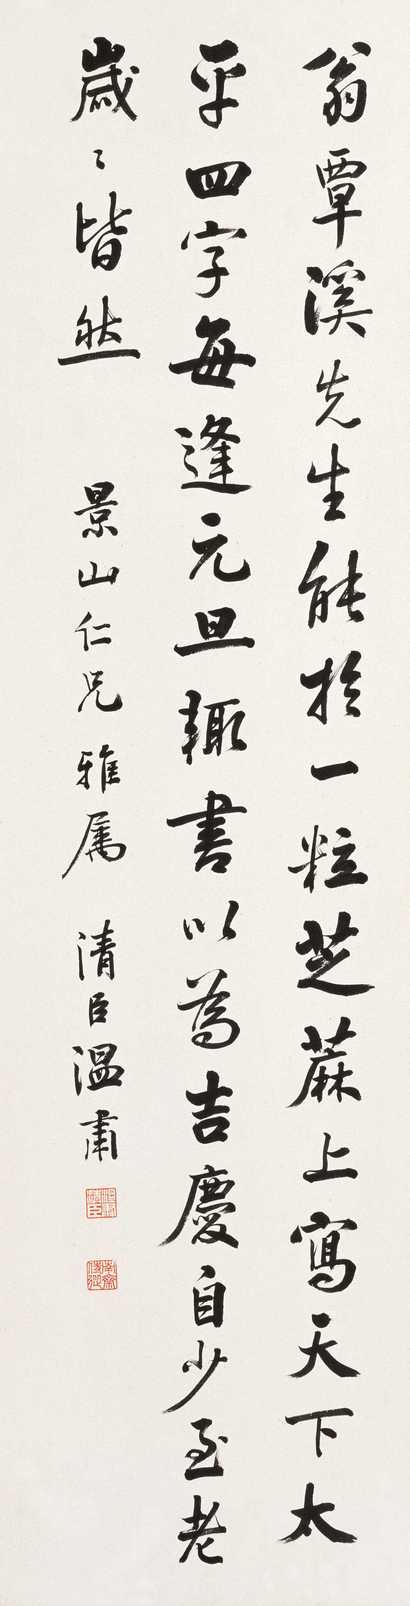 翁覃溪先生能於一粒芝蔴上寫天下太
平四字每逢元旦輙書以為吉慶自少至老
歲〻皆然
景山仁兄雅属 清臣溫肅